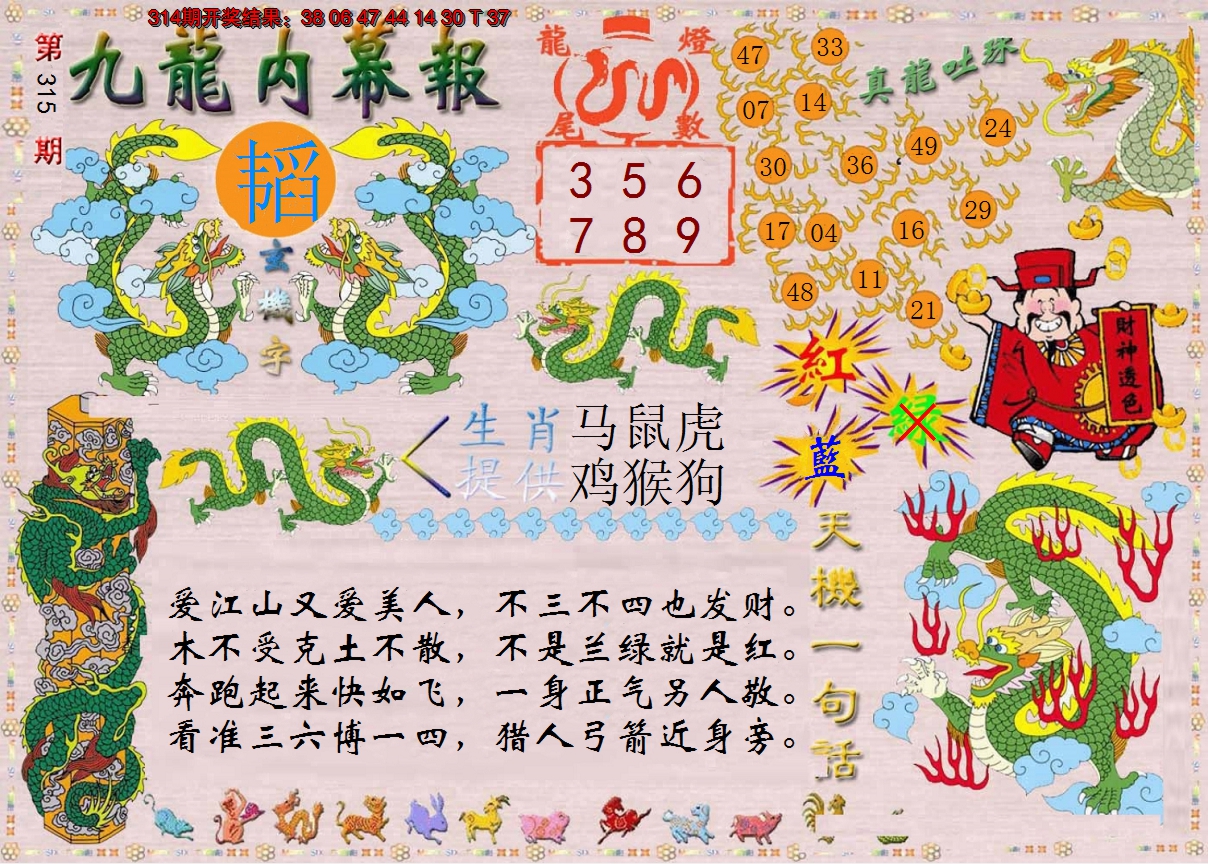 314期开奖结果：38 06 47 44 14 30 T 37
第315期
九龍内幕報
龍燈
尾數
3 5 6
7 8 9
真龍吐珠
47 33
07 14
49 24
30 36
29
17 04 16
48 11
21
韬
玄機字
財神透色
紅
绿
藍
生肖 马鼠虎
提供 鸡猴狗
天機一句話
爱江山又爱美人，不三不四也发财。
木不受克土不散，不是兰绿就是红。
奔跑起来快如飞，一身正气另人敬。
看准三六博一四，猎人弓箭近身旁。